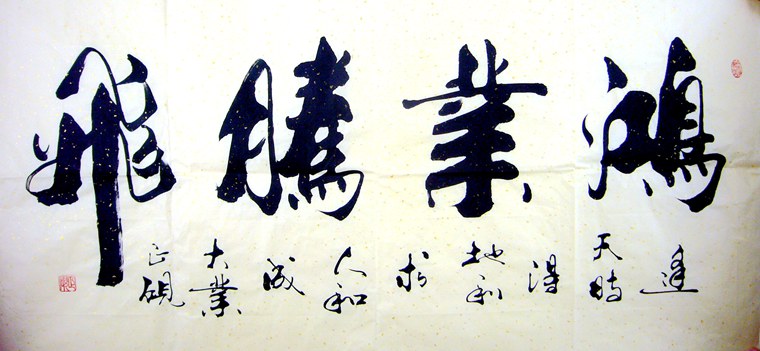 鴻業騰飛
逢天時得地利求人和成大業
硯